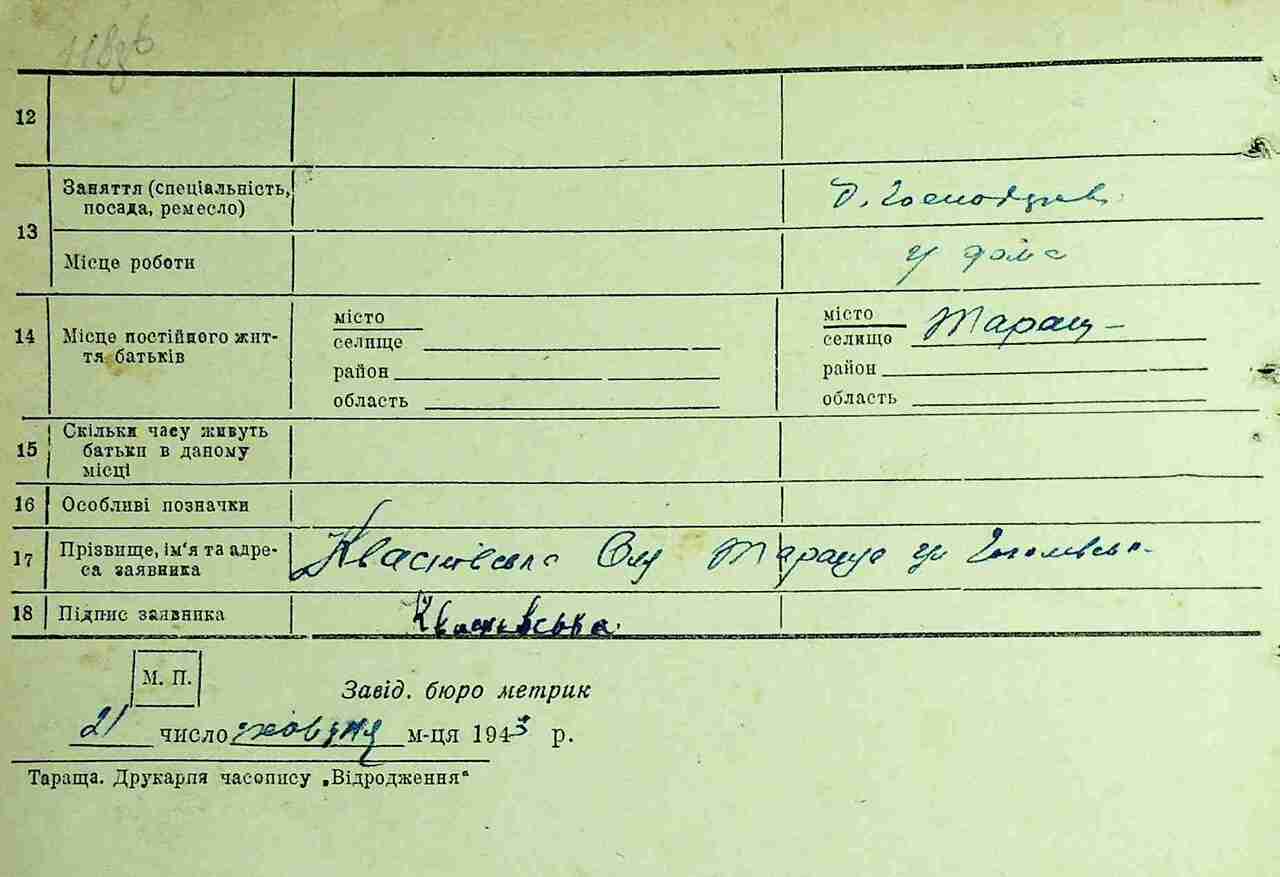 12
Заняття (спеціальність,
посада, ремесло)
Д. Господрев.
13
Місце роботи
у дома
14
Місце постійного жит-
тя батьків
місто
селище
район
область
місто Таращ-
селищо
район
область
15
Скільки часу живуть
батьки в даному
місці
16 Особливі позначки
17
Прізвище, ім'я та адре-
са заявника
Квасневська Тараща
18 Підпис заявника
Квасневська.
М. П.
Завід. бюро метрик
21 число жовтня м-ця 1943 р.
Тараща. Друкарня часопису „Відродження"